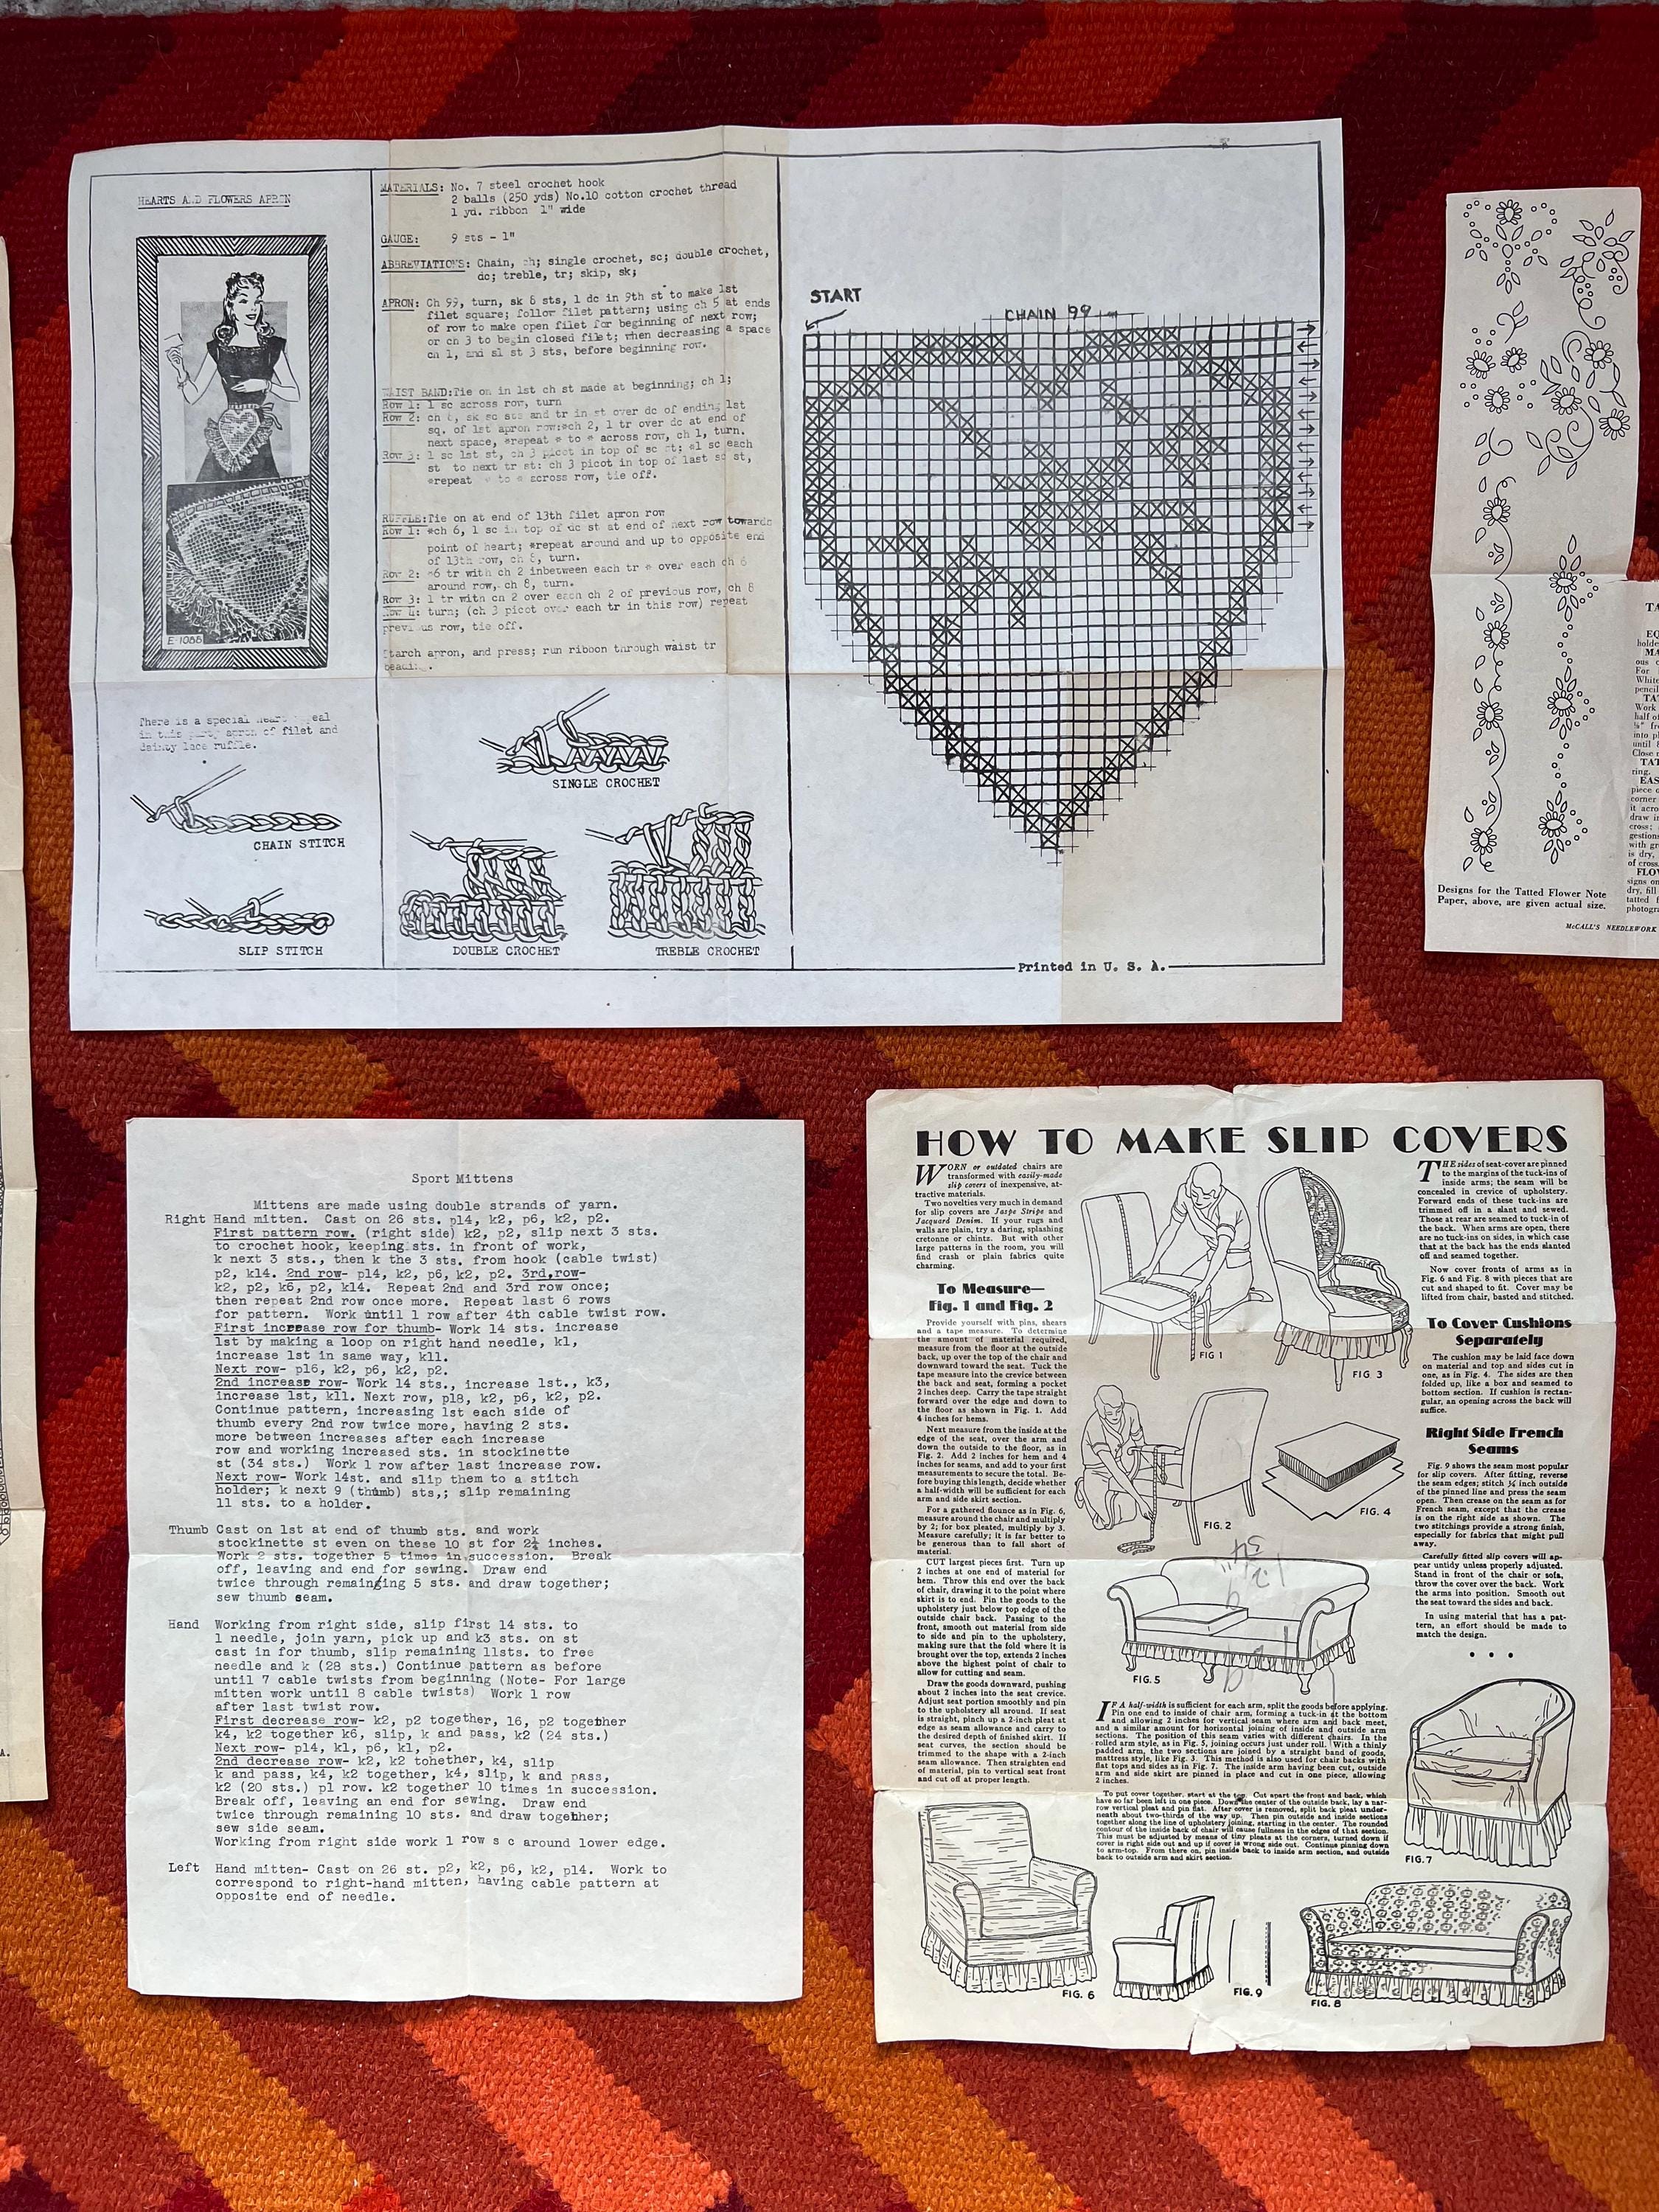 HEARTS AND FLOWERS APRON
E-1088
There is a special heart
in this party apron of filet and
dainty lace ruffle.
CHAIN STITCH
SLIP STITCH
MATERIALS: No. 7 steel crochet hook
2 balls (250 yds) No.10 cotton crochet thread
1 yd. ribbon 1" wide
GAUGE: 9 sts - 1"
ABBREVIATIONS: Chain, ch; single crochet, sc; double crochet,
dc; treble, tr; skip, sk;
APRON: Ch 99, turn, sk 8 sts, 1 dc in 9th st to make 1st
filet square; follow filet pattern; using ch 5 at ends
of row to make open filet for beginning of next row;
or ch 3 to begin closed filet; when decreasing a space
ch 1, and sl st 3 sts, before beginning row.
WAIST BAND:Tie on in 1st ch st made at beginning; ch 1;
Row 1: 1 sc across row, turn
Row 2: ch 8, sk sc sts and tr in st over dc of ending 1st
sq. of 1st apron row:*ch 2, 1 tr over dc at end of
next space, *repeat * to * across row, ch 1, turn.
Row 3: 1 sc 1st st, ch 3 picot in top of sc st; *1 sc each
st to next tr st: ch 3 picot in top of last sc st,
*repeat * to * across row, tie off.
RUFFLE:Tie on at end of 13th filet apron row
Row 1: *ch 6, 1 sc in top of dc st at end of next row towards
point of heart; *repeat around and up to opposite end
of 13th row, ch 8, turn.
Row 2: *6 tr with ch 2 inbetween each tr * over each ch 6
around row, ch 8, turn.
Row 3: 1 tr with ch 2 over each ch 2 of previous row, ch 8
Row 4: turn; (ch 3 picot over each tr in this row) repeat
previous row, tie off.
Starch apron, and press; run ribbon through waist tr
SINGLE CROCHET
DOUBLE CROCHET
TREBLE CROCHET
START
CHAIN 99
Printed in U. S. A.
Designs for the Tatted Flower Note
Paper, above, are given actual size.
McCALL'S NEEDLEWORK
TA
EQ
holde
MA
ous c
For
White
pencil
TAT
Work
half of
⅛" fr
into pl
until 8
Close r
TAT
ring.
EAS
piece o
corner
it acro
draw in
cross;
gestions
with gr
is dry,
of cross.
FLOV
signs on
dry, fill
tatted f
photogra
A.
Sport Mittens
Mittens are made using double strands of yarn.
Right Hand mitten. Cast on 26 sts. p14, k2, p6, k2, p2.
First pattern row. (right side) k2, p2, slip next 3 sts.
to crochet hook, keeping sts. in front of work,
k next 3 sts., then k the 3 sts. from hook (cable twist)
p2, k14. 2nd row- p14, k2, p6, k2, p2. 3rd,row-
k2, p2, k6, p2, k14. Repeat 2nd and 3rd row once;
then repeat 2nd row once more. Repeat last 6 rows
for pattern. Work until 1 row after 4th cable twist row.
First increase row for thumb- Work 14 sts. increase
1st by making a loop on right hand needle, k1,
increase 1st in same way, k11.
Next row- p16, k2, p6, k2, p2.
2nd increase row- Work 14 sts., increase 1st., k3,
increase 1st, k11. Next row, p18, k2, p6, k2, p2.
Continue pattern, increasing 1st each side of
thumb every 2nd row twice more, having 2 sts.
more between increases after each increase
row and working increased sts. in stockinette
st (34 sts.) Work 1 row after last increase row.
Next row- Work 14st. and slip them to a stitch
holder; k next 9 (thumb) sts,; slip remaining
11 sts. to a holder.
Thumb Cast on 1st at end of thumb sts. and work
stockinette st even on these 10 st for 2¼ inches.
Work 2 sts. together 5 times in succession. Break
off, leaving and end for sewing. Draw end
twice through remaining 5 sts. and draw together;
sew thumb seam.
Hand Working from right side, slip first 14 sts. to
1 needle, join yarn, pick up and k3 sts. on st
cast in for thumb, slip remaining 11sts. to free
needle and k (28 sts.) Continue pattern as before
until 7 cable twists from beginning (Note- For large
mitten work until 8 cable twists) Work 1 row
after last twist row.
First decrease row- k2, p2 together, 16, p2 together
k4, k2 together k6, slip, k and pass, k2 (24 sts.)
Next row- p14, k1, p6, k1, p2.
2nd decrease row- k2, k2 tohether, k4, slip
k and pass, k4, k2 together, k4, slip, k and pass,
k2 (20 sts.) p1 row. k2 together 10 times in succession.
Break off, leaving an end for sewing. Draw end
twice through remaining 10 sts. and draw together;
sew side seam.
Working from right side work 1 row s c around lower edge.
Left Hand mitten- Cast on 26 st. p2, k2, p6, k2, p14. Work to
correspond to right-hand mitten, having cable pattern at
opposite end of needle.
HOW TO MAKE SLIP COVERS
WORN or outdated chairs are
transformed with easily-made
slip covers of inexpensive, at-
tractive materials.
Two novelties very much in demand
for slip covers are Jaspe Stripe and
Jacquard Denim. If your rugs and
walls are plain, try a daring, splashing
cretonne or chintz. But with other
large patterns in the room, you will
find crash or plain fabrics quite
charming.
To Measure—
Fig. 1 and Fig. 2
Provide yourself with pins, shears
and a tape measure. To determine
the amount of material required,
measure from the floor at the outside
back, up over the top of the chair and
downward toward the seat. Tuck the
tape measure into the crevice between
the back and seat, forming a pocket
2 inches deep. Carry the tape straight
forward over the edge and down to
the floor as shown in Fig. 1. Add
4 inches for hems.
Next measure from the inside at the
edge of the seat, over the arm and
down the outside to the floor, as in
Fig. 2. Add 2 inches for hem and 4
inches for seams, and add to your first
measurements to secure the total. Be-
fore buying this length, decide whether
a half-width will be sufficient for each
arm and side skirt section.
For a gathered flounce as in Fig. 6,
measure around the chair and multiply
by 2; for box pleated, multiply by 3.
Measure carefully; it is far better to
be generous than to fall short of
material.
CUT largest pieces first. Turn up
2 inches at one end of material for
hem. Throw this end over the back
of chair, drawing it to the point where
skirt is to end. Pin the goods to the
upholstery just below top edge of the
outside chair back. Passing to the
front, smooth out material from side
to side and pin to the upholstery,
making sure that the fold where it is
brought over the top, extends 2 inches
above the highest point of chair to
allow for cutting and seam.
Draw the goods downward, pushing
about 2 inches into the seat crevice.
Adjust seat portion smoothly and pin
to the upholstery all around. If seat
is straight, pinch up a 2-inch pleat at
edge as seam allowance and carry to
the desired depth of finished skirt. If
seat curves, the section should be
trimmed to the shape with a 2-inch
seam allowance. Then straighten end
of material, pin to vertical seat front
and cut off at proper length.
FIG 1
FIG. 3
FIG. 2
FIG. 4
34"
FIG. 5
IF A half-width is sufficient for each arm, split the goods before applying.
Pin one end to inside of chair arm, forming a tuck-in at the bottom
and allowing 2 inches for vertical seam where arm and back meet,
and a similar amount for horizontal joining of inside and outside arm
sections. The position of this seam varies with different chairs. In the
rolled arm style, as in Fig. 5, joining occurs just under roll. With a thinly
padded arm, the two sections are joined by a straight band of goods,
mattress style, like Fig. 3. This method is also used for chair backs with
flat tops and sides as in Fig. 7. The inside arm having been cut, outside
arm and side skirt are pinned in place and cut in one piece, allowing
2 inches.
To put cover together, start at the top. Cut apart the front and back, which
have so far been left in one piece. Down the center of the outside back, lay a nar-
row vertical pleat and pin flat. After cover is removed, split back pleat under-
neath about two-thirds of the way up. Then pin outside and inside sections
together along the line of upholstery joining, starting in the center. The rounded
contour of the inside back of chair will cause fullness in the edges of that section.
This must be adjusted by means of tiny pleats at the corners, turned down if
cover is right side out and up if cover is wrong side out. Continue pinning down
to arm-top. From there on, pin inside back to inside arm section, and outside
back to outside arm and skirt section.
THE sides of seat-cover are pinned
to the margins of the tuck-ins of
inside arms; the seam will be
concealed in crevice of upholstery.
Forward ends of these tuck-ins are
trimmed off in a slant and sewed.
Those at rear are seamed to tuck-in of
the back. When arms are open, there
are no tuck-ins on sides, in which case
that at the back has the ends slanted
off and seamed together.
Now cover fronts of arms as in
Fig. 6 and Fig. 8 with pieces that are
cut and shaped to fit. Cover may be
lifted from chair, basted and stitched.
To Cover Cushions
Separately
The cushion may be laid face down
on material and top and sides cut in
one, as in Fig. 4. The sides are then
folded up, like a box and seamed to
bottom section. If cushion is rectan-
gular, an opening across the back will
suffice.
Right Side French
Seams
Fig. 9 shows the seam most popular
for slip covers. After fitting, reverse
the seam edges; stitch ¼ inch outside
of the pinned line and press the seam
open. Then crease on the seam as for
French seam, except that the crease
is on the right side as shown. The
two stitchings provide a strong finish,
especially for fabrics that might pull
away.
Carefully fitted slip covers will ap-
pear untidy unless properly adjusted.
Stand in front of the chair or sofa,
throw the cover over the back. Work
the arms into position. Smooth out
the seat toward the sides and back.
In using material that has a pat-
tern, an effort should be made to
match the design.
FIG. 7
FIG. 6
FIG. 9
FIG. 8